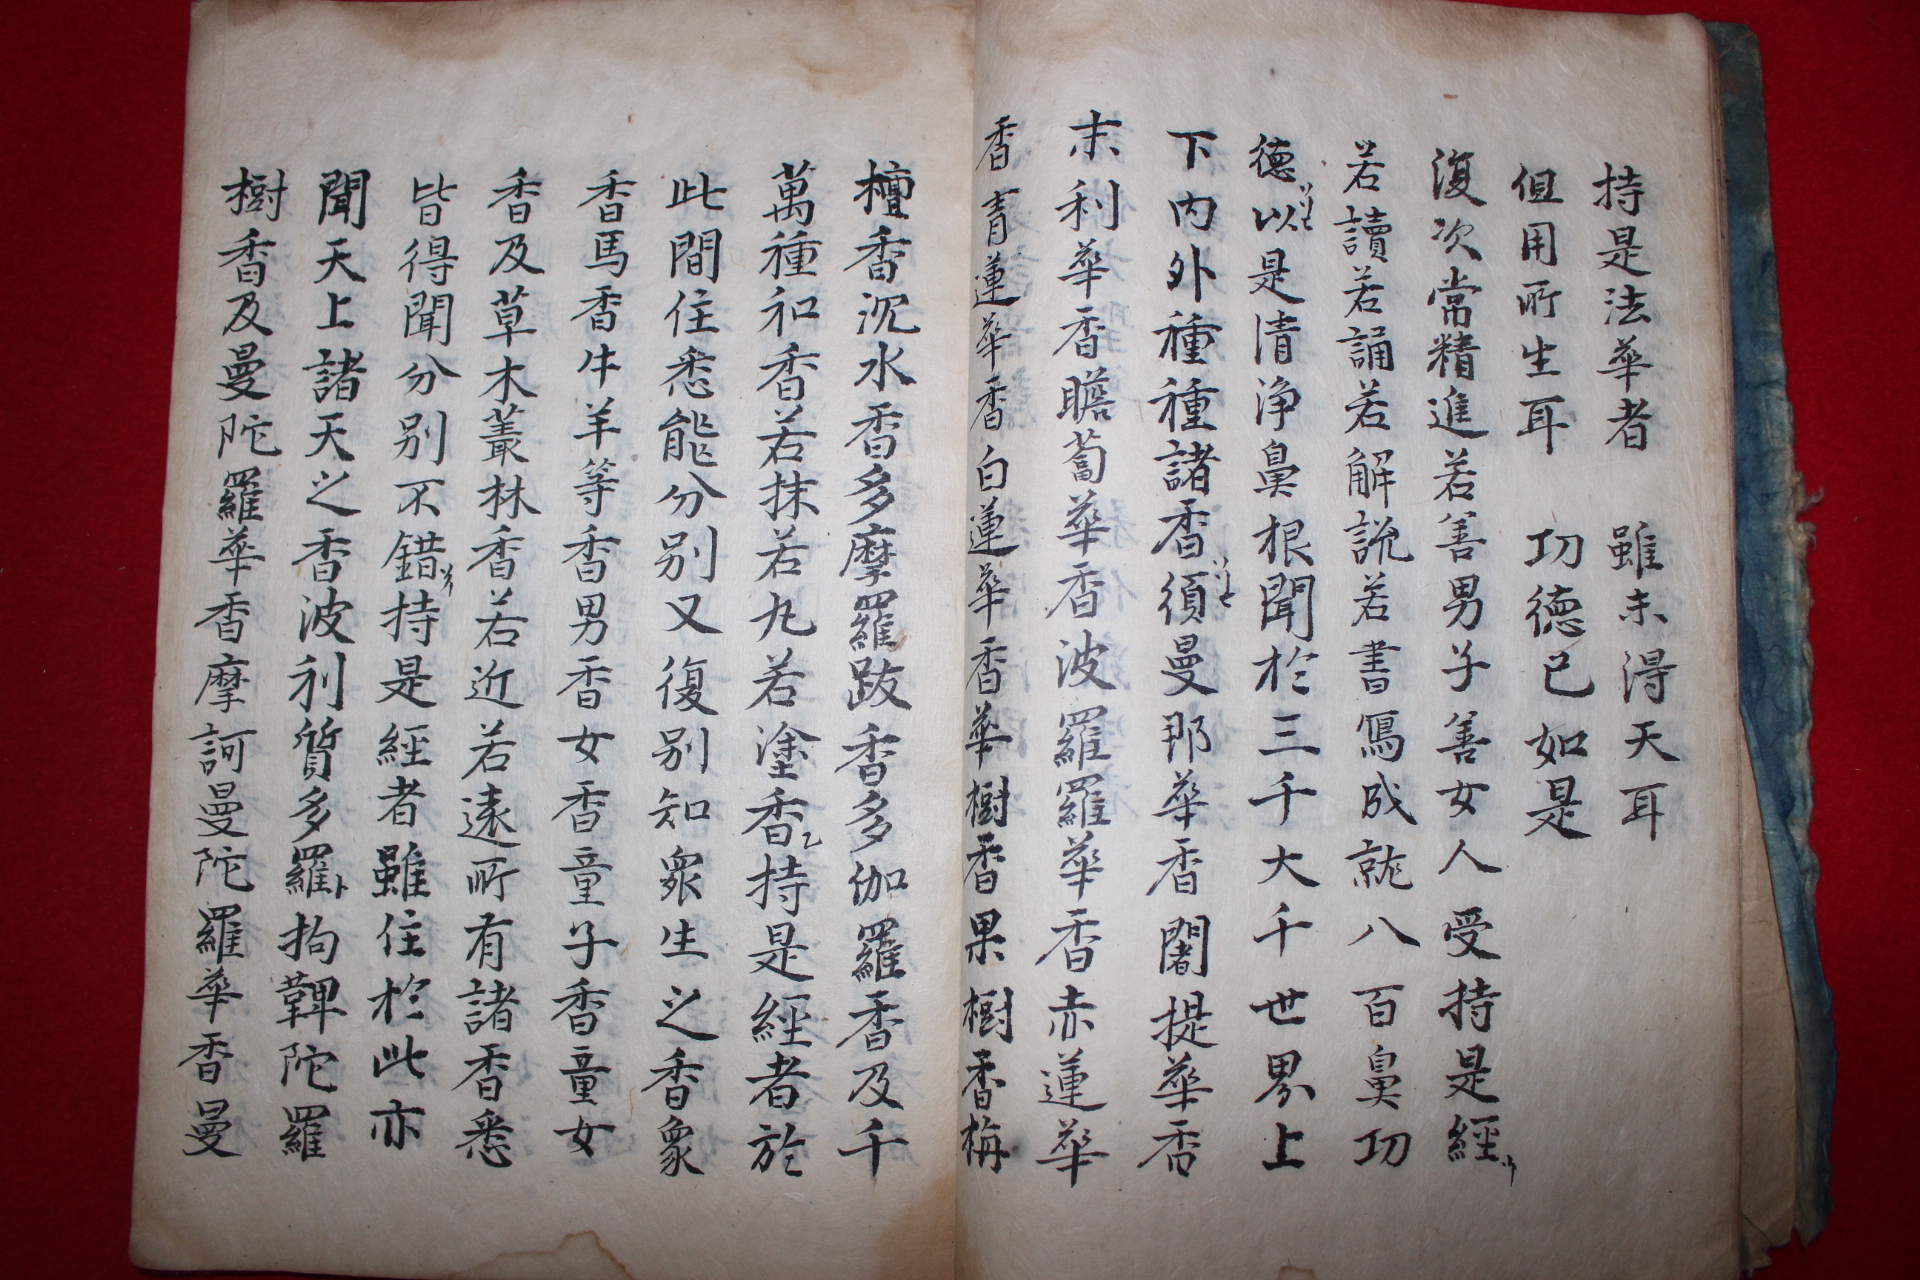 持是法華者　雖未得天耳
但用所生耳　功德已如是
復次常精進若善男子善女人受持是經
若讀若誦若解說若書寫成就八百鼻功
德以是清淨鼻根聞於三千大千世界上
下內外種種諸香須曼那華香闍提華香
末利華香瞻蔔華香波羅羅華香赤蓮華
香青蓮華香白蓮華香華樹香果樹香栴
檀香沉水香多摩羅跋香多伽羅香及千
萬種和香若抹若丸若塗香持是經者於
此間住悉能分別又復別知衆生之香象
香馬香牛羊等香男香女香童子香童女
香及草木叢林香若近若遠所有諸香悉
皆得聞分別不錯持是經者雖住於此亦
聞天上諸天之香波利質多羅拘鞞陀羅
樹香及曼陀羅華香摩訶曼陀羅華香曼